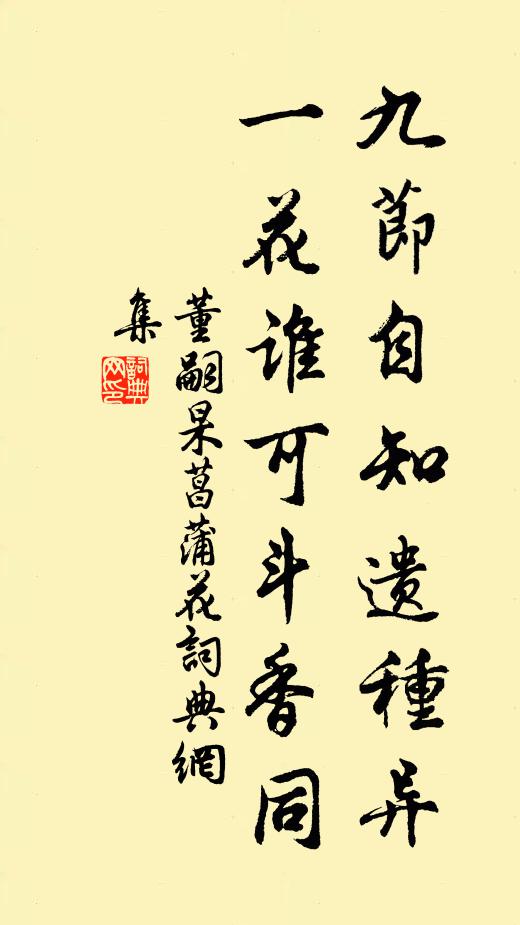 九節自知遗種异
一花谁可斗香同
董嗣杲菖蒲花詞典網
集
詞典
网印